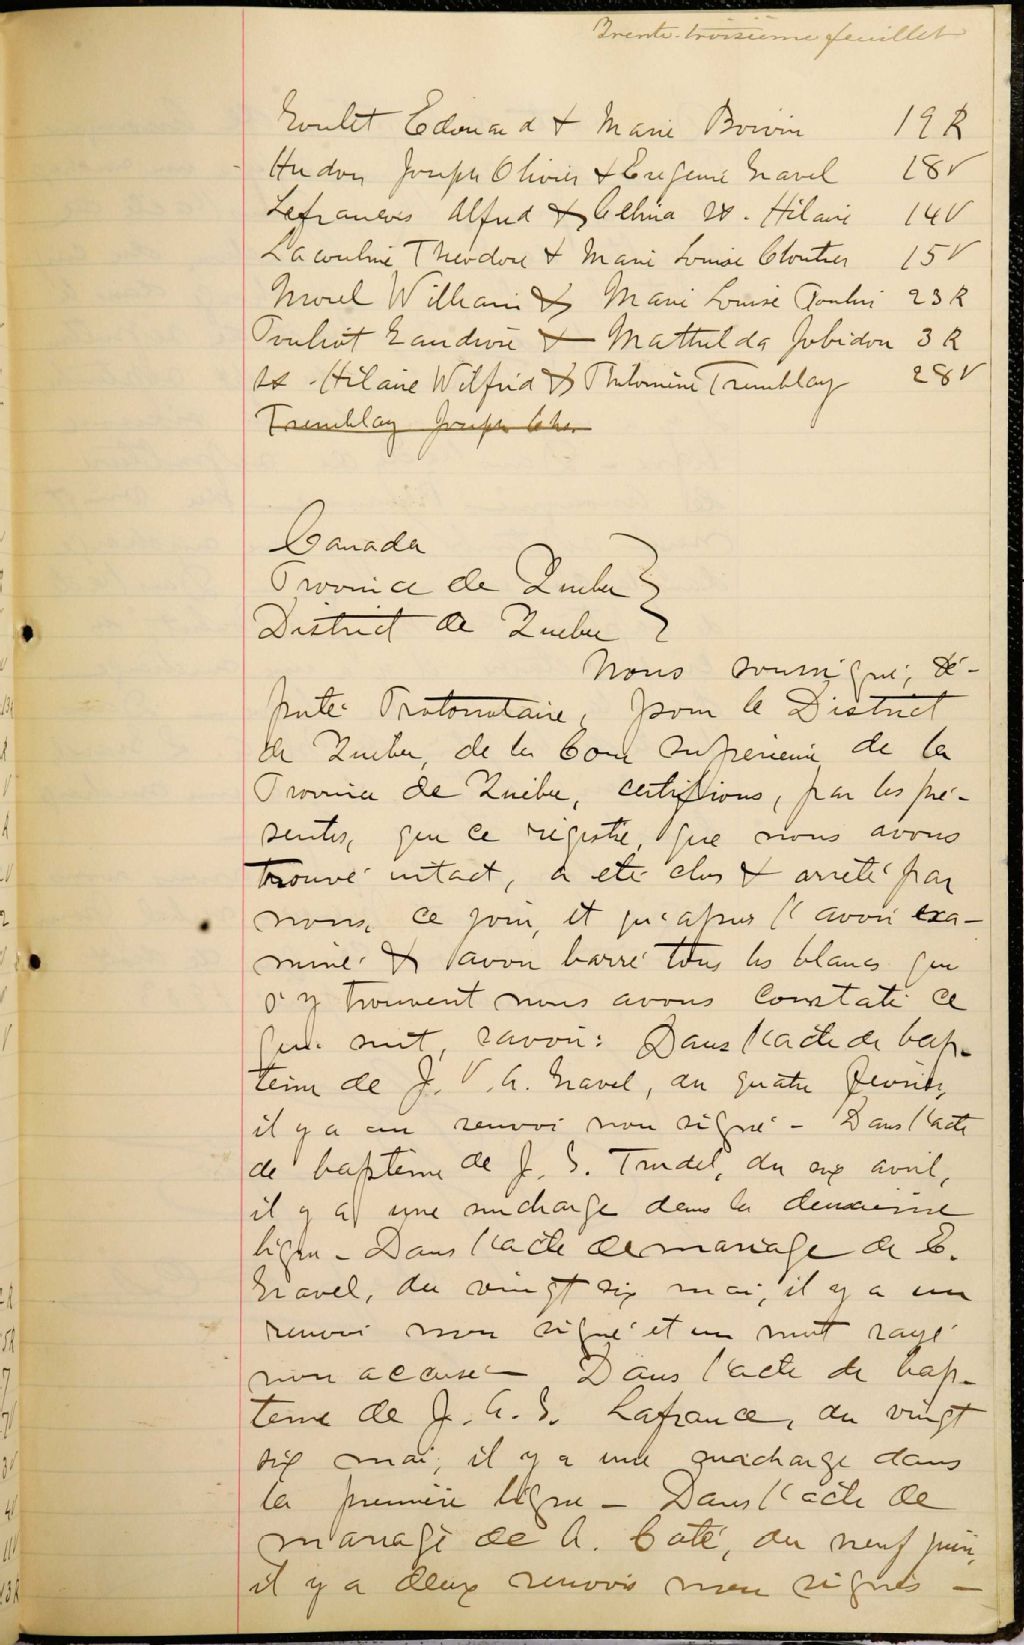 Trente-troisième feuillet
Goulet Edouard & Marie Boivin 19 R
Hudon Joseph Olivier & Eugenie Gravel 18 V
Lefrancois Alfred & Celina St. Hilaire 14 V
Lacouline Theodore & Marie Louise Cloutier 15 V
Morel William & Marie Louise Poulin 23 R
Pouliot Gaudiose & Mathilda Jobidon 3 R
St-Hilaire Wilfrid & Philomène Tremblay 28 V
Tremblay Joseph Chs.
Canada
Province de Quebec
District de Quebec
Nous soussigné, dé-
puté Protonotaire, pour le District
de Quebec, de la Cour supérieure, de la
Province de Québec, certifions, par les pré-
sentes, que ce régistre, que nous avons
trouvé intact, a été clos & arrêté par
nous, ce jour, et qu'apres l'avoir exa-
miné & avoir barré tous les blancs qui
s'y trouvent nous avons constaté ce
qui suit, savoir: Dans l'acte de bap-
teme de J. V. A. Gravel, du quatre fevrier,
il y a un renvoi non signé - Dans l'acte
de bapteme de J. G. Trudel, du six avril,
il y a une surcharge dans la deuxieme
ligne - Dans l'acte de mariage de E.
Gravel, du vingt six mai, il y a un
renvoi non signé et un mot rayé
non accusé - Dans l'acte de bap-
teme de J. A. G. Lafrance, du vingt
six mai, il y a une surcharge dans
la première ligne - Dans l'acte de
mariage de A. Coté, du neuf juin,
il y a deux renvois non signés -